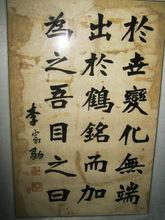 於世變化無端
出於鶴銘而加
為之吾目之曰
李家駒